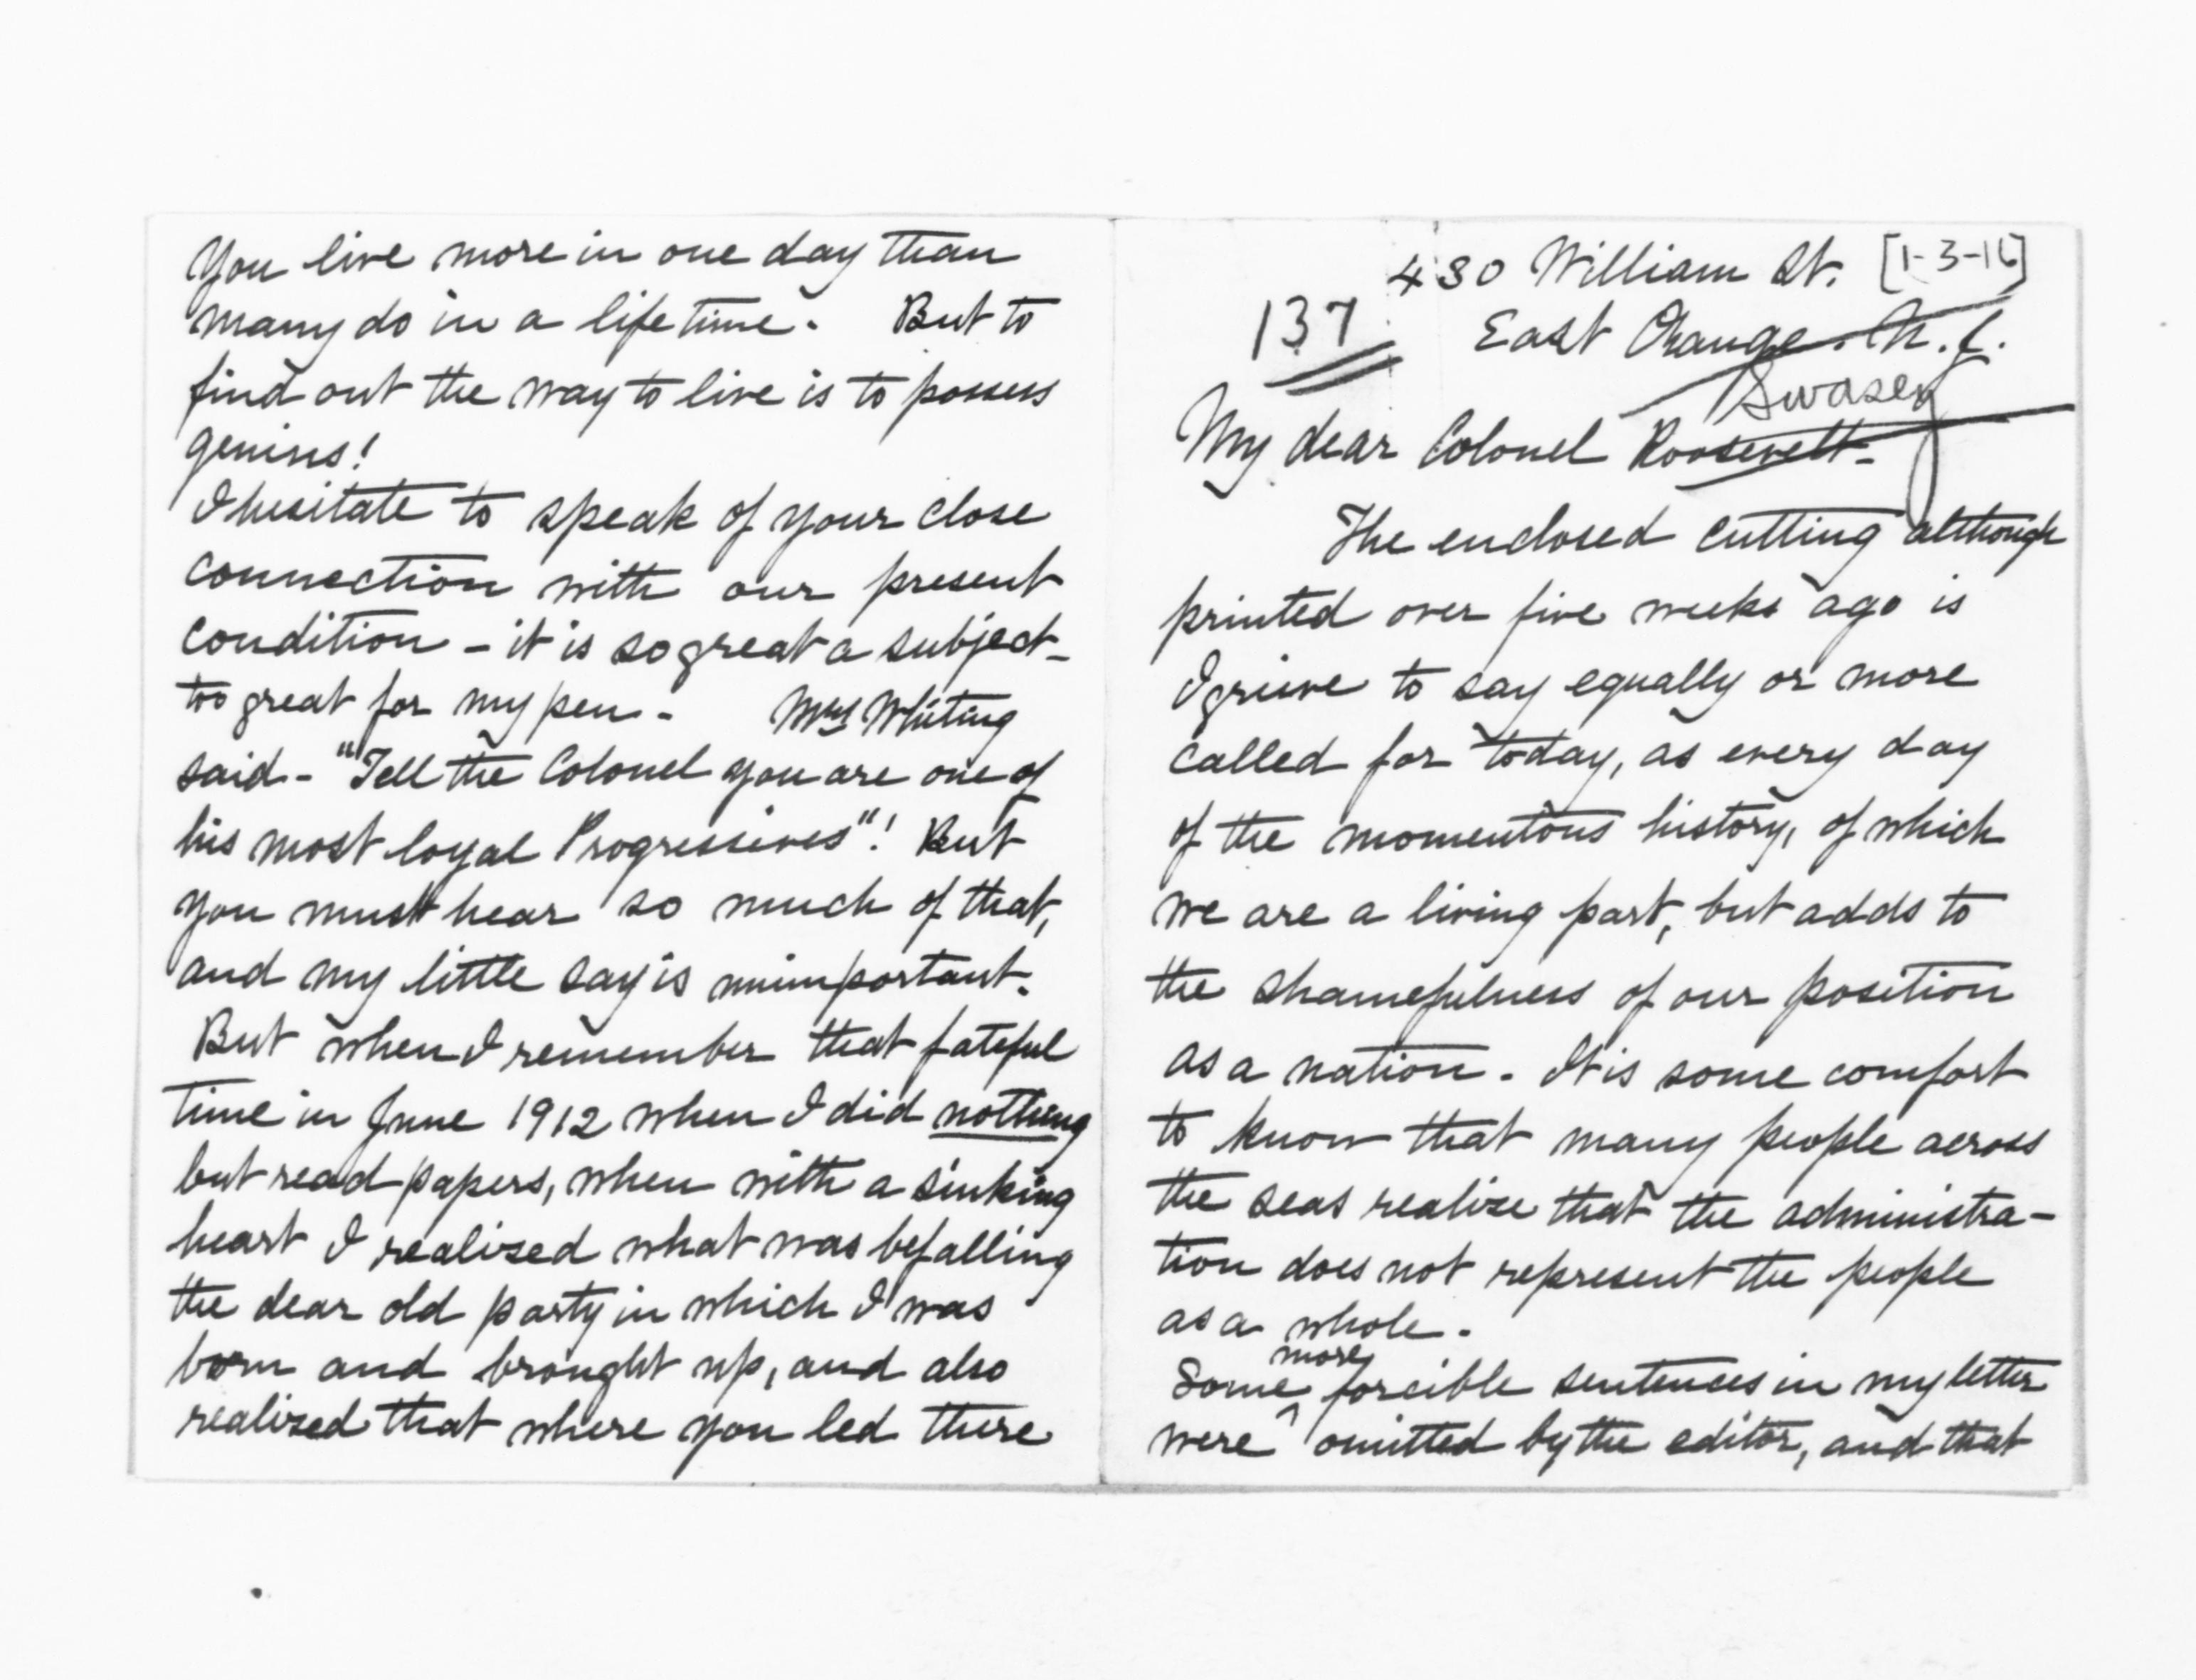 You live more in one day than
many do in a life time. But to
find out the way to live is to possess
genius!
I hesitate to speak of your close
connection with our present
condition - it is so great a subject -
too great for my pen - Mrs Whiting
said - "Tell the Colonel you are one of
his most loyal Progressives"! But
you must hear so much of that,
and my little say is unimportant.
But when I remember that fateful
time in June 1912 when I did nothing
but read papers, when with a sinking
heart I realized what was befalling
the dear old party in which I was
born and brought up, and also
realized that where you led there
430 William St. [1-3-16]
137 East Orange. N.J.
Swasey
My dear Colonel Roosevelt -
The enclosed cutting although
printed over five weeks ago is
I grieve to say equally or more
called for today, as every day
of the momentous history, of which
we are a living part, but adds to
the shamefulness of our position
as a nation. It is some comfort
to know that many people across
the seas realize that the administra-
tion does not represent the people
as a whole.
more
Some forcible sentences in my letter
were omitted by the editor, and that